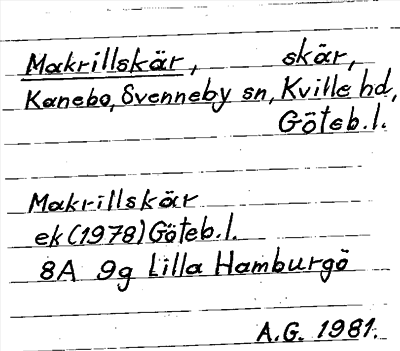 Makrillskär, skär,
Kanebo, Svenneby sn, Kville hd,
Göteb.l.
Makrillskär
ek (1978) Göteb.l.
8A 9g Lilla Hamburgö
A.G. 1981.